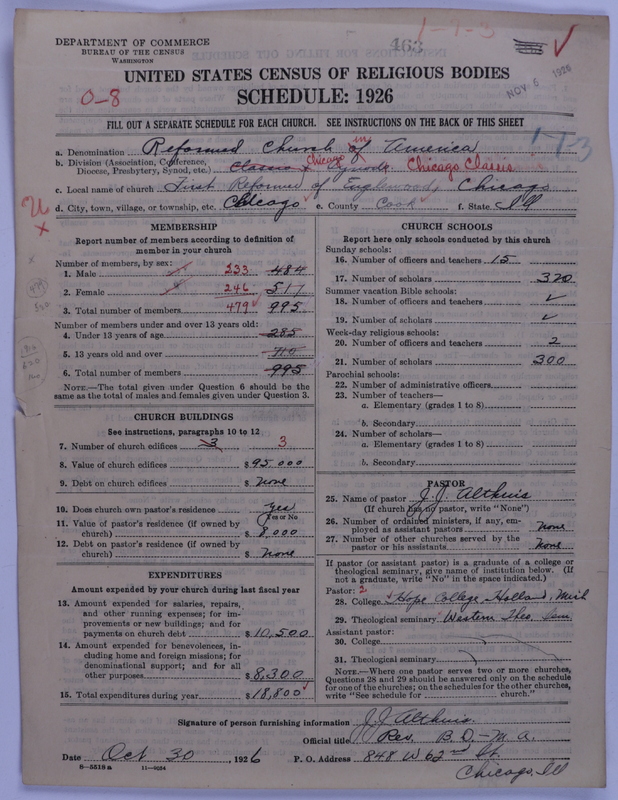 DEPARTMENT OF COMMERCE
BUREAU OF THE CENSUS
WASHINGTON
463
1-7-3
NOV 6 1926
UNITED STATES CENSUS OF RELIGIOUS BODIES
SCHEDULE: 1926
0-8
FILL OUT A SEPARATE SCHEDULE FOR EACH CHURCH. SEE INSTRUCTIONS ON THE BACK OF THIS SHEET
1-7-3
a. Denomination Reformed Church in America
b. Division (Association, Conference, Diocese, Presbytery, Synod, etc.) Classis Chicago Synod Chicago Classis
c. Local name of church First Reformed of Englewood, Chicago
d. City, town, village, or township, etc. Chicago e. County Cook f. State Ill
MEMBERSHIP
Report number of members according to definition of member in your church
Number of members, by sex:
1. Male 233 484
2. Female 246 517
3. Total number of members 479 995
Number of members under and over 13 years old:
4. Under 13 years of age 285
5. 13 years old and over 710
6. Total number of members 995
NOTE.—The total given under Question 6 should be the same as the total of males and females given under Question 3.
CHURCH BUILDINGS
See instructions, paragraphs 10 to 12
7. Number of church edifices 3 3
8. Value of church edifices $95 000
9. Debt on church edifices $ None
10. Does church own pastor's residence yes
Yes or No
11. Value of pastor's residence (if owned by church) $ 8,000
12. Debt on pastor's residence (if owned by church) $ None
EXPENDITURES
Amount expended by your church during last fiscal year
13. Amount expended for salaries, repairs, and other running expenses; for improvements or new buildings; and for payments on church debt $10,500
14. Amount expended for benevolences, including home and foreign missions; for denominational support; and for all other purposes $8,300
15. Total expenditures during year $18,800
CHURCH SCHOOLS
Report here only schools conducted by this church
Sunday schools:
16. Number of officers and teachers 15
17. Number of scholars 320
Summer vacation Bible schools:
18. Number of officers and teachers ✓
19. Number of scholars ✓
Week-day religious schools:
20. Number of officers and teachers 2
21. Number of scholars 300
Parochial schools:
22. Number of administrative officers
23. Number of teachers—
a. Elementary (grades 1 to 8)
b. Secondary
24. Number of scholars—
a. Elementary (grades 1 to 8)
b. Secondary
PASTOR
25. Name of pastor J. J. Althuis
(If church has no pastor, write "None")
26. Number of ordained ministers, if any, employed as assistant pastors None
27. Number of other churches served by the pastor or his assistants None
If pastor (or assistant pastor) is a graduate of a college or theological seminary, give name of institution below. (If not a graduate, write "No" in the space indicated.)
Pastor: 2
28. College Hope College Holland, Mich
29. Theological seminary Western Theo. Sem
Assistant pastor:
30. College
31. Theological seminary
NOTE.—Where one pastor serves two or more churches, Questions 28 and 29 should be answered only on the schedule for one of the churches; on the schedules for the other churches, write "See schedule for church."
Signature of person furnishing information J. J. Althuis
Official title Rev. B.D.-M.A.
Date Oct 30, 1926 P. O. Address 848 W 62nd St.
Chicago, Ill
8—5518 a 11—9554